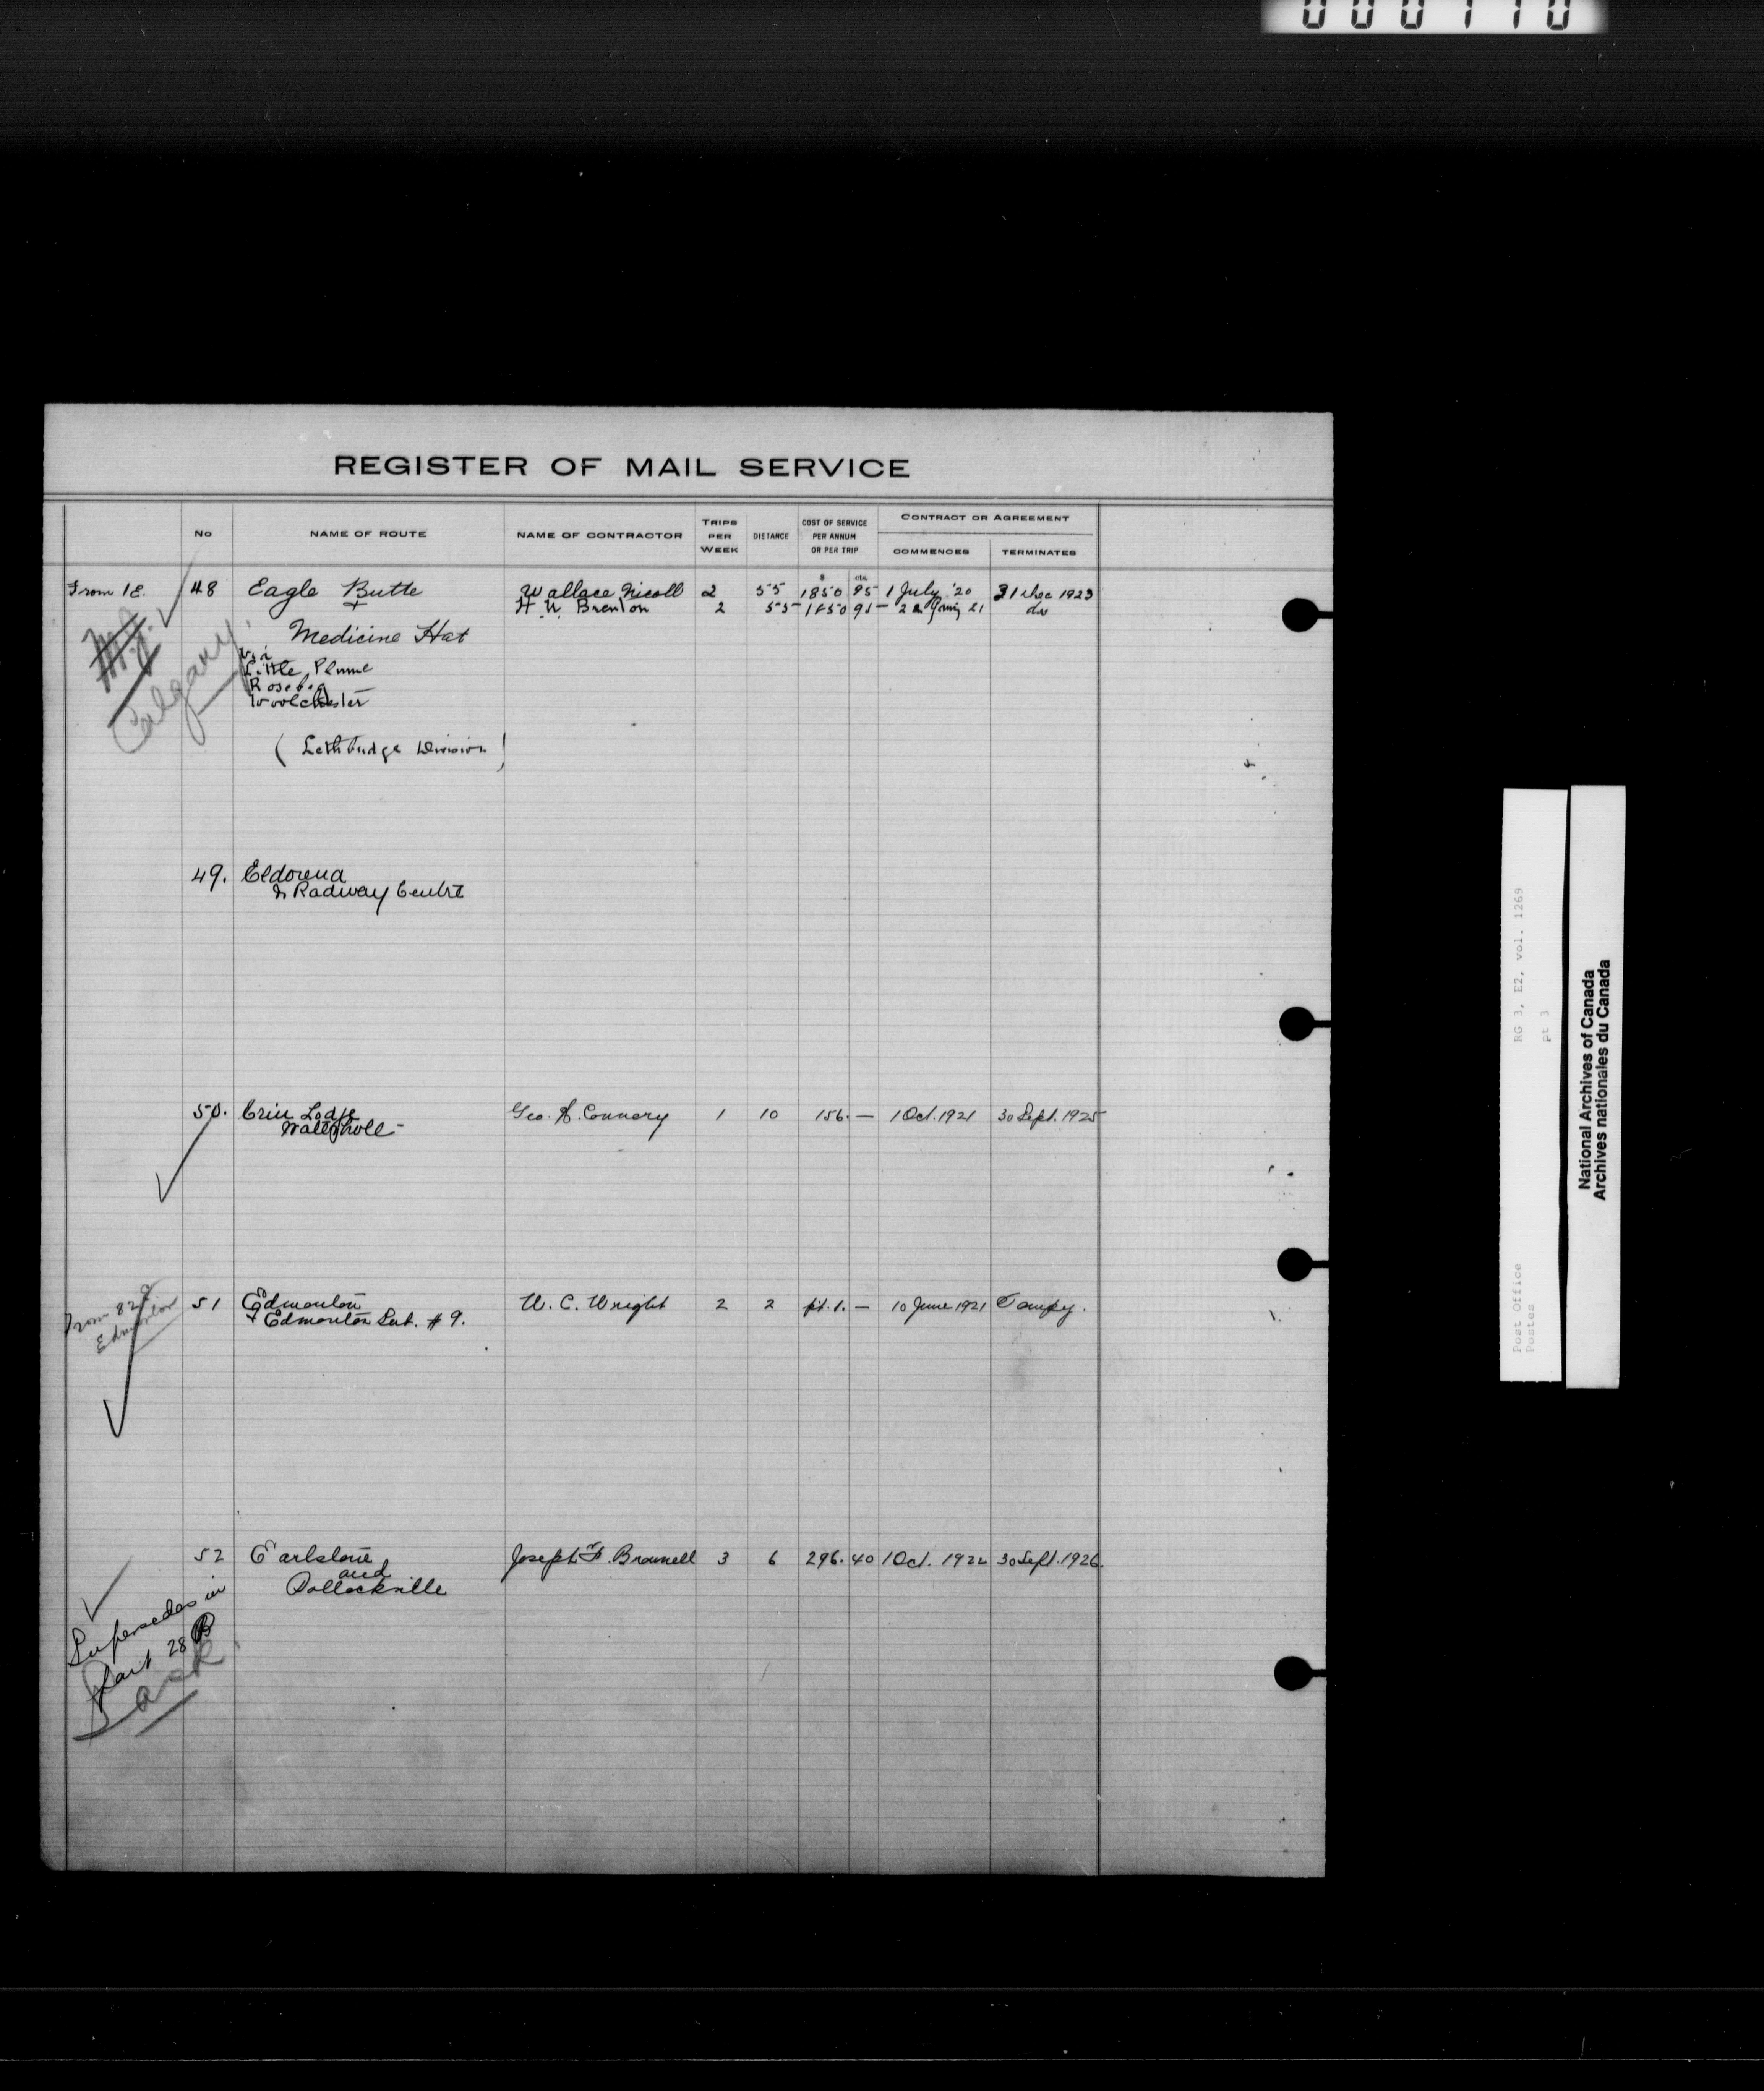 000110
REGISTER OF MAIL SERVICE
No
NAME OF ROUTE
NAME OF CONTRACTOR
TRIPS PER WEEK
DISTANCE
COST OF SERVICE PER ANNUM OR PER TRIP
CONTRACT OR AGREEMENT
COMMENCES
TERMINATES
$ cts.
From 1E. 48 Eagle Butte Wallace Nicoll 2 55 1850 95 1 July '20 31 Dec 1923
+ H. N. Brenton 2 55 1850 95 21 do
Medicine Hat
via
Little Plume
Rosebeg
Woolchester
Calgary.
(Lethbridge Division)
49. Eldorena
& Radway Centre
50. Erin Lodge Geo. A. Connery 1 10 156. — 1 Oct. 1921 30 Sept. 1925
Waterhole
From 82
Edmonton
51 Edmonton W. C. Wright 2 2 pt. 1. — 10 June 1921 Tempy.
+ Edmonton Sub. # 9.
52 Earlstone Joseph F. Brownell 3 6 296. 40 1 Oct. 1922 30 Sept. 1926.
and
Pollockville
Supersedes in
part 28 B
Sask.
RG 3, E2, vol. 1269
pt 3
Post Office
Postes
National Archives of Canada
Archives nationales du Canada